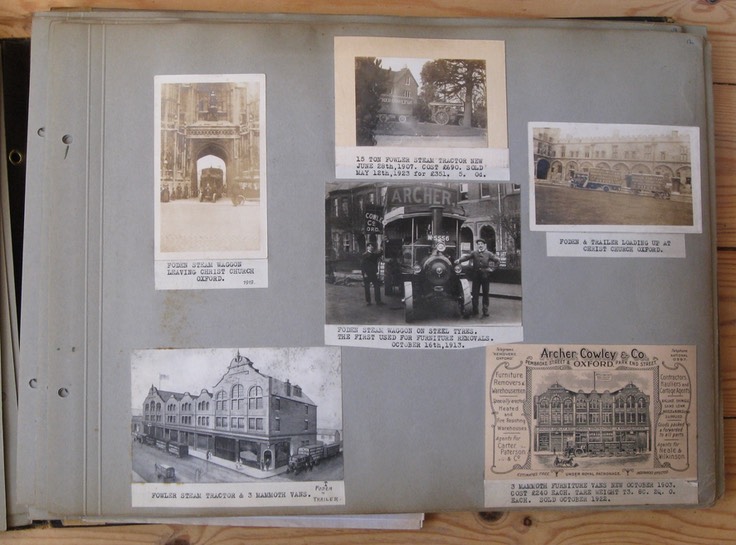 15 TON FOWLER STEAM TRACTOR NEW
JUNE 28th,1907. COST £690. SOLD
MAY 12th,1923 for £351. 5. 0d.
FODEN STEAM WAGGON
LEAVING CHRIST CHURCH
OXFORD.
ARCHER.
FODEN & TRAILER LOADING UP AT
CHRIST CHURCH OXFORD.
FODEN STEAM WAGGON ON STEEL TYRES.
THE FIRST USED FOR FURNITURE REMOVALS.
OCTOBER 16th,1913.
FOWLER STEAM TRACTOR & 3 MAMMOTH VANS.
FODEN
&
TRAILER
Archer, Cowley & Co.
PEMBROKE STREET & OXFORD PARK END STREET
Furniture
Removers &
Warehousemen
Specially erected
Heated
and
Fire Resisting
Warehouses
Agents for
Carter
Paterson
& Co
Contractors,
Hauliers and
Cartage Agents
Goods packed
& forwarded
to all parts
Agents for
Neale &
Wilkinson
3 MAMMOTH FURNITURE VANS NEW OCTOBER 1903.
COST £240 EACH. TARE WEIGHT
EACH. SOLD OCTOBER 1922.